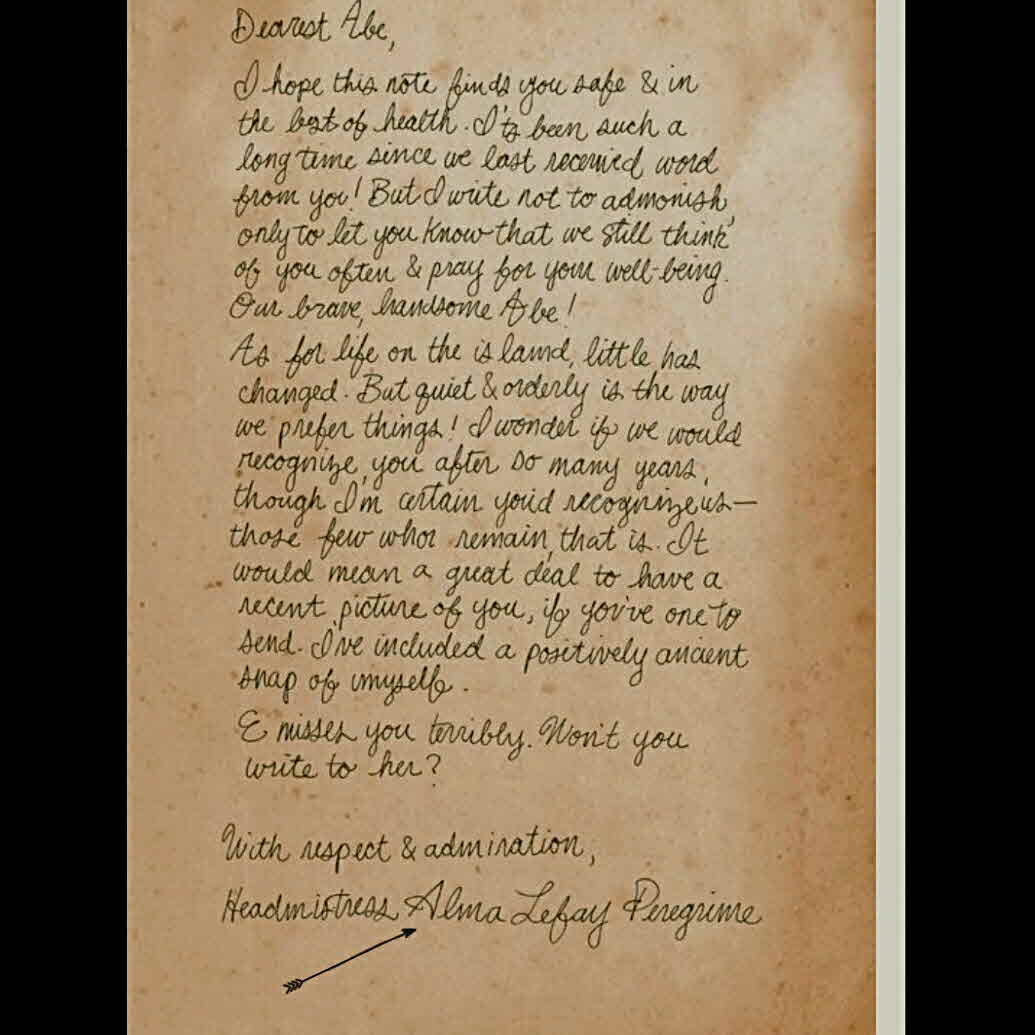 Dearest Abe,
I hope this note finds you safe & in
the best of health. It's been such a
long time since we last received word
from you! But I write not to admonish,
only to let you know that we still think
of you often & pray for your well-being.
Our brave, handsome Abe!
As for life on the island, little has
changed. But quiet & orderly is the way
we prefer things! I wonder if we would
recognize you after so many years,
though I'm certain you'd recognize us—
those few who remain, that is. It
would mean a great deal to have a
recent picture of you, if you've one to
send. I've included a positively ancient
snap of myself.
E misses you terribly. Won't you
write to her?
With respect & admiration,
Headmistress Alma Lefay Peregrine